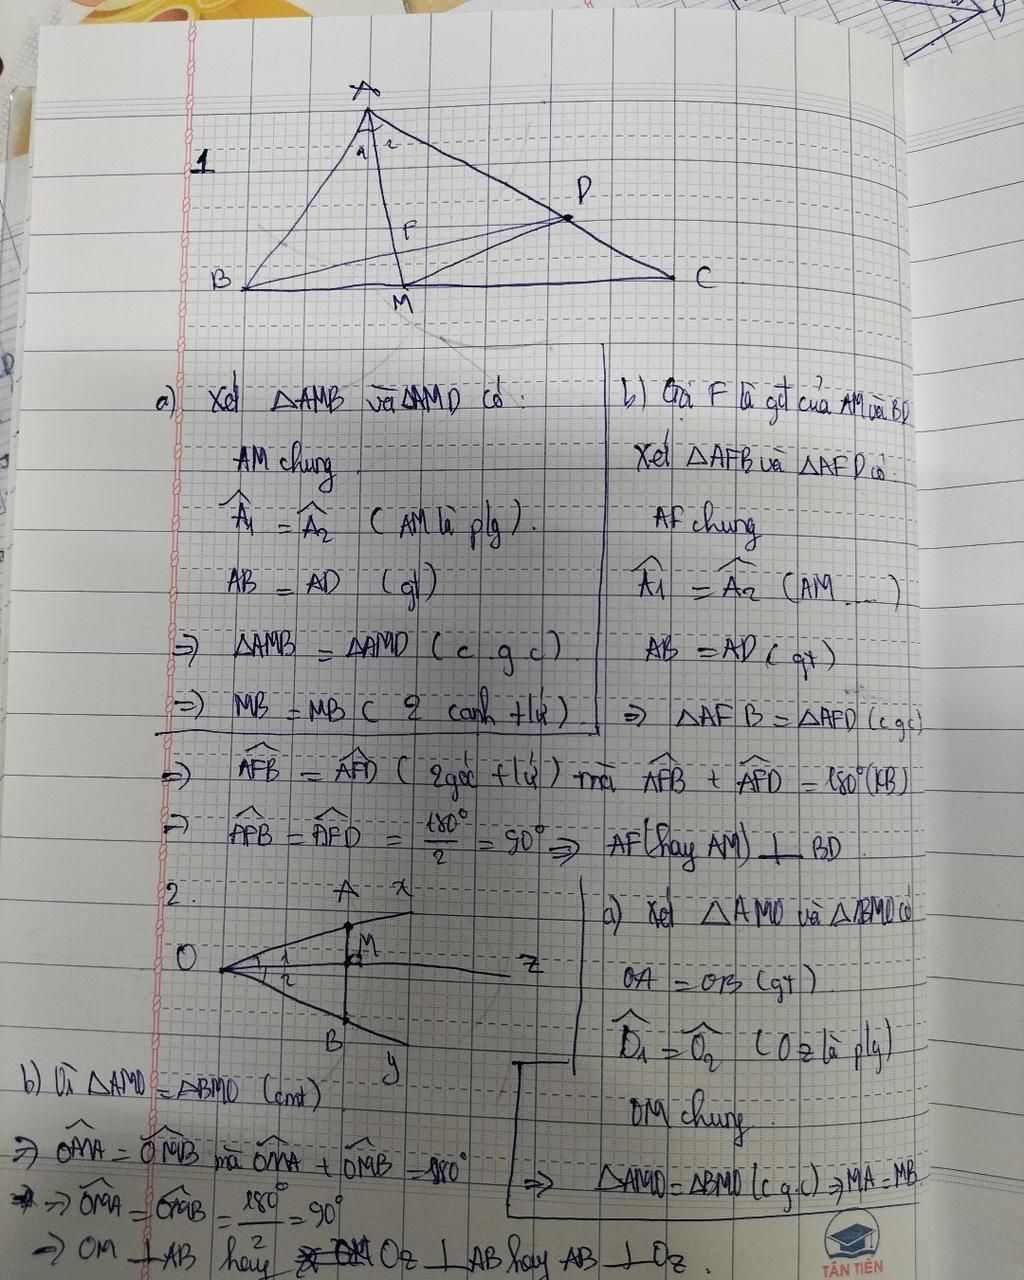 A
1
1 2
D
F
B
M
C
a) Xét △AMB và △AMD có:
AM chung
Â1 = Â2 (AM là p/g).
AB = AD (gt)
=> △AMB = △AMD (c.g.c)
=> MB = MB (2 cạnh t/ứ)
b) Gọi F là gđ của AM và BD
Xét △AFB và △AFD có:
AF chung
Â1 = Â2 (AM ....)
AB = AD (gt)
=> △AFB = △AFD (cgc)
=> AFB = AFD (2 góc t/ứ) mà AFB + AFD = 180° (KB)
=> AFB = AFD = 180°/2 = 90° => AF (hay AM) ⊥ BD
2.
A x
O 1 2 M z
B
y
a) Xét △AMO và △BMO có
OA = OB (gt)
Ô1 = Ô2 (Oz là p/g)
OM chung
=> △AMO = △BMO (c.g.c) => MA = MB
b) Vì △AMO = △BMO (cmt)
=> OMA = OMB mà OMA + OMB = 180°
=> OMA = OMB = 180°/2 = 90°
=> OM ⊥ AB hay Oz ⊥ AB hay AB ⊥ Oz.
TÂN TIẾN